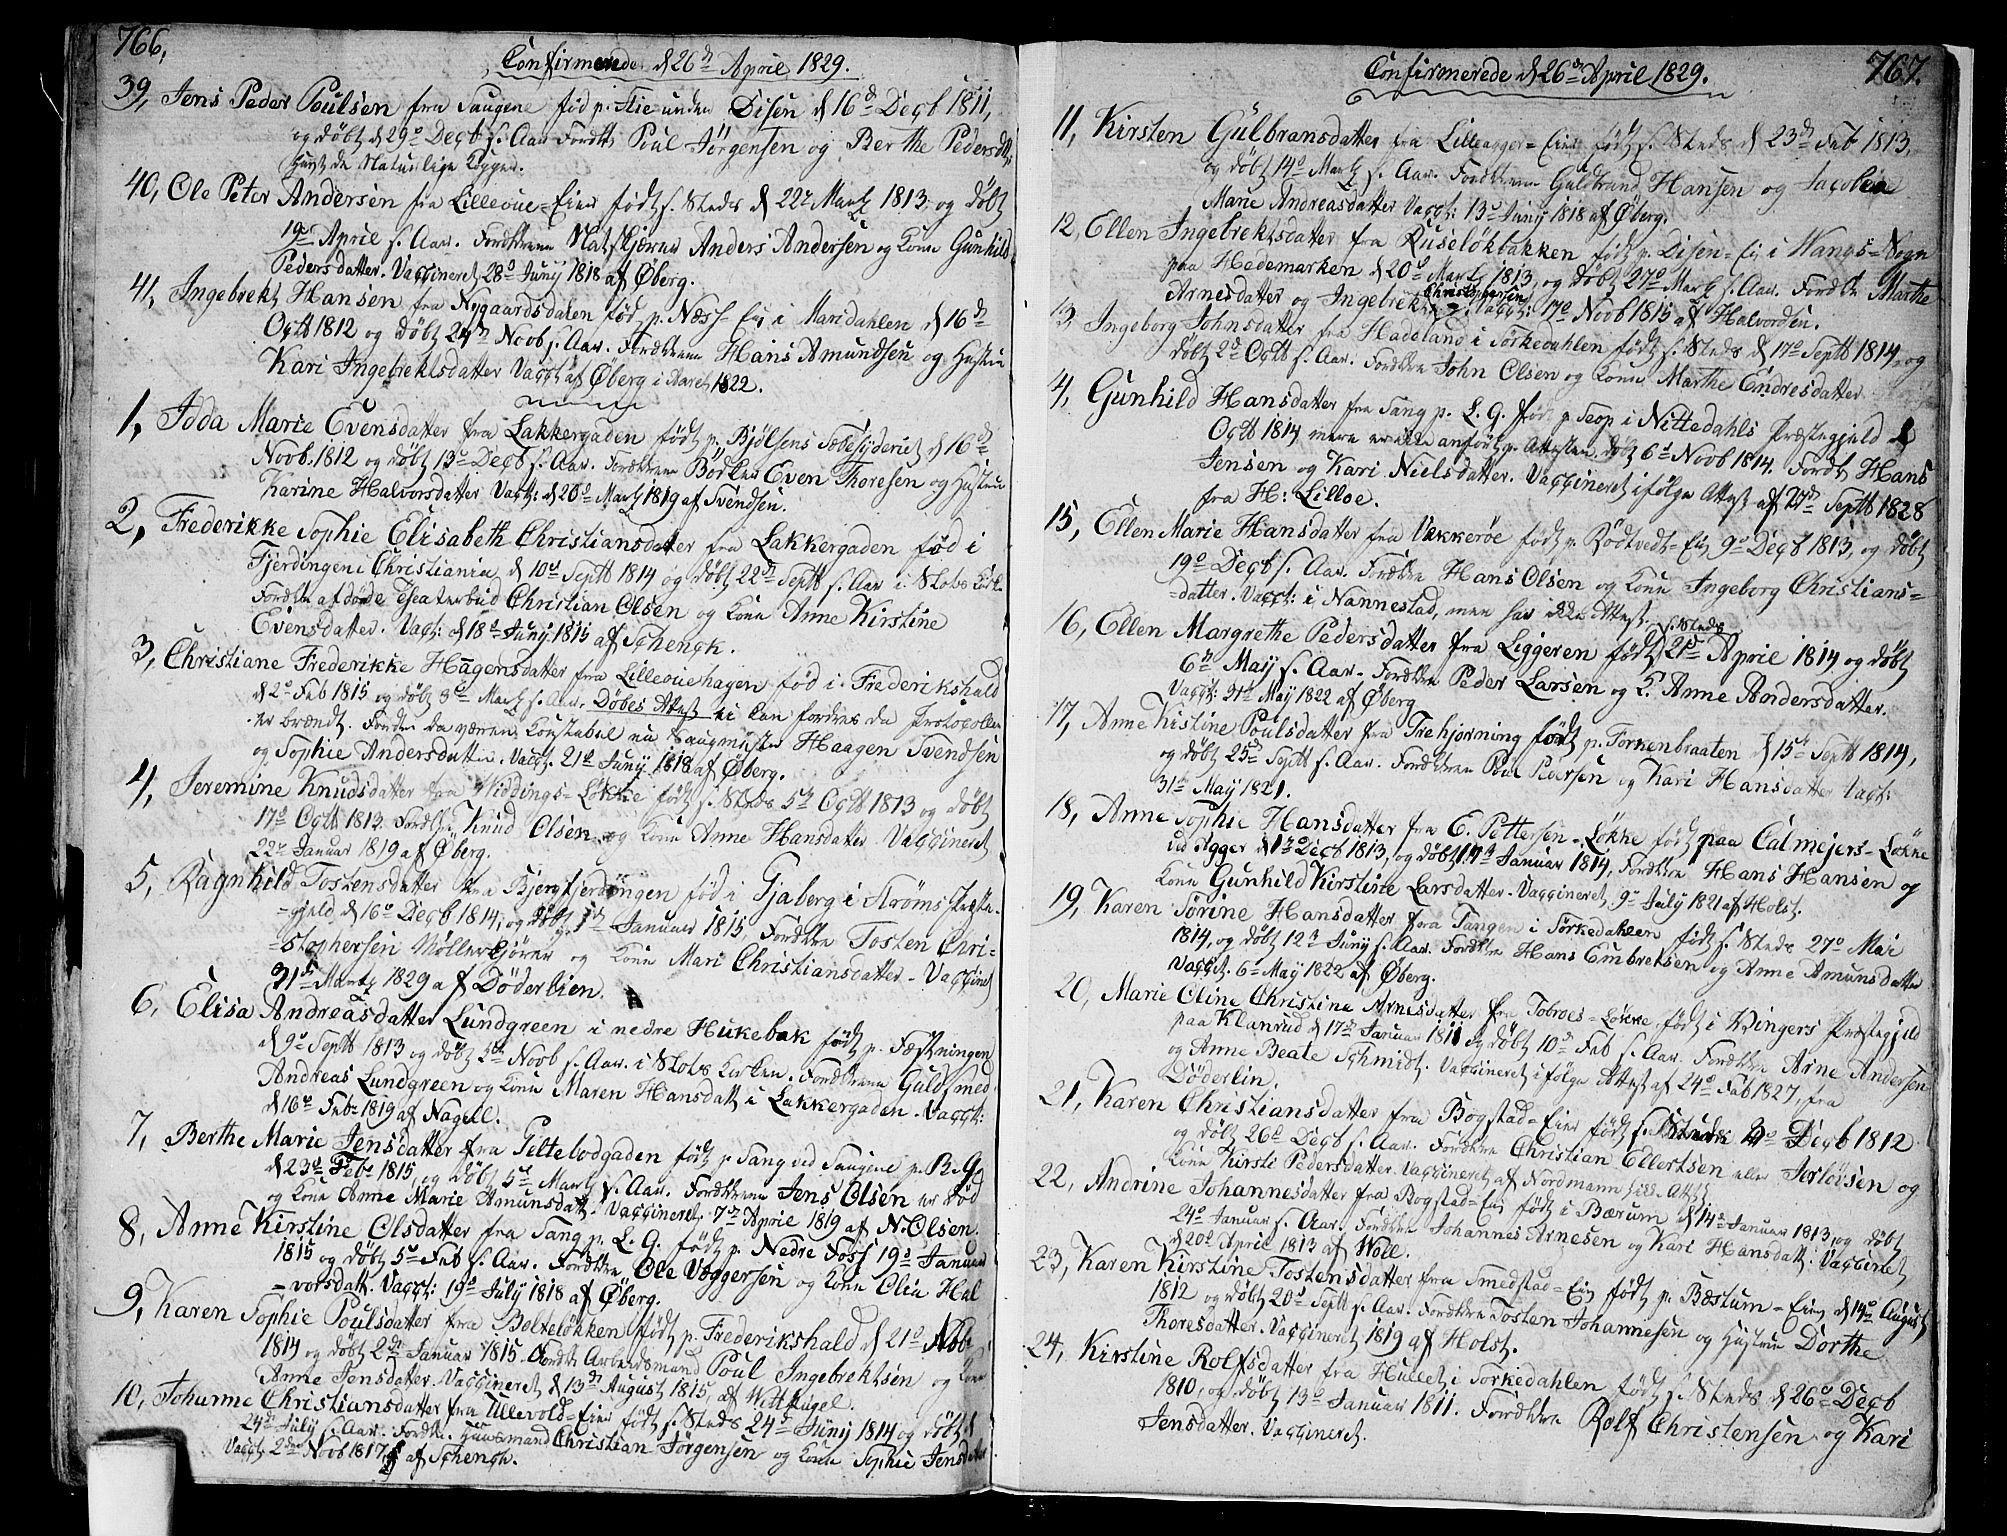 766,
Confirmerede d 26de April 1829.
39, Jens Peder Poulsen fra Saugene fød p. Stie unden Disen d 16d Decb 1811,
og døbt d 29d Decb s. Aar Fordtt Poul Jörgensen og Berthe Pedersdtt,
Naturlige
40, Ole Peter Andersen fra Lilleoue-Eier født s. Steds d 22d Martz 1813 og døbt
19de April s. Aar. Fordttrene Anders Andersen og Konn Gunhild
Pedersdatter. Vaccineret 28d Junij 1818 af Øberg.
41, Ingebrekt Hansen fra Nygaardsdalen fød p. Næss-Ei i Maridahlen d 16de
Octb 1812 og døbt 24de Novb s. Aar. Fordttrene Hans Amundsen og Hustru
Kari Ingebrektsdatter Vacct af Øberg i Aaret 1822.
1, Idda Marie Evensdatter fra Lakkergaden født p. Bjølsens d 16de
Novb. 1812 og døbt 13d Decb s. Aar. Forættrene Bödker Even Thoresen og Hustru
Karine Halvorsdatter Vacct: d 26d Martz 1819 af Svendsen.
2, Frederikke Sophie Elisabeth Christiansdatter fra Lakkergaden fød i
Fjerdingen i Christiania d 10d Septb 1814 og døbt 22de Septb s. Aar i Slots Kirk.
Forættre afdøde Theaterbud Christian Olsen og Konn Anne Kirstine
Evensdatter. Vacct: d 18d Junij 1815 af Schenck.
3, Christiane Frederikke Hagensdatter fra Lilleouehagen fød i Frederikshald
d 2d Feb 1815 og døbt 3d Martz s. Aar. Døbes Attest ei kan fordres da Protocollen
er brændt. Fordtre daværen Konstabel nu Saugmester Haagen Svendsen
og Sophie Andersdatter. Vacct. 21d Junij 1818 af Øberg.
4, Jeremine Knudsdatter fra Widdings-Løkke født s. Steds 5te Octb 1813 og døbt
17d Octb 1813. Fordttre Knud Olsen og Konn Anne Hansdatter Vaccineret
22de Januar 1819 af Øberg.
5, Ragnhild Tostensdatter fra Bjergfjerdingen fød i Gjaberg i Strøms Præste-
=gjeld d 16de Decb 1814, og døbt 1de Januar 1815 Fordttre Tosten Chri-
=stophersen Möllerkjörer og Konn Mari Christiansdatter - Vaccinet
31de Martz 1829 af Döderlien.
6, Elisa Andreasdatter Lundgreen i nedre Hukebak født p. Fæstningen
d 9d Septb 1813 og døbt 5te Novb s. Aar. i Slots Kirken. Fordttrene Guldsmed
Andreas Lundgreen og Konn Maren Hansdatt i Lakkergaden. Vacct:
d 16de Feb: 1819 af Nagell.
7, Berthe Marie Jensdatter fra Peltelodgaden født p. Sang ved Saugene p. B. G.
d 23d Feb: 1815, og døbt 5te Martz s. Aar. Fordttrene Jens Olsen er död
og Konn Anne Marie Amunsdatt. Vaccineret 7de April 1819 af N. Olsen.
8, Anne Kirstine Olsdatter fra Sang p. L. G. født p. Nedre Foss 19d Januar
1815 og døbt 5te Feb s. Aar. Fordttre Ole Væggersen og Konn Olia Hal
=vorsdatt. Vacct: 19d July 1818 af Øberg.
9, Karen Sophie Poulsdatter fra Bolteløkken født p. Frederikshald d 21d Nob:
1814 og døbt 2de Januar 1815. Fordttre Arbeidsmand Poul Ingebrektsen og Konn
Anne Jensdatter. Vaccineret d 13de August 1815 af Wittkugel.
10, Johanne Christiansdatter fra Ullevold-Eier født s. Steds 24de Junij 1814 og døbt
24de July s. Aar. Fordtre. Huusmand Christian Jørgensen og Konn Sophie Jensdatter
Vacct 2den Novb 1817 af Schenck.
767.
Confirmerede d 26de April 1829.
11, Kirsten Gülbransdatter fra Lilleagger-Eier født s. Steds d 23de Feb 1813,
og døbt 14d Martz s. Aar. Fordttrene Guldbrand Hansen og Jacobia
Marie Andreasdatter Vacct: 13d Junij 1818 af Øberg.
12, Ellen Ingebrektsdatter fra Ruseløkbakken født p. Disen-Ei i Wangs-Sogn
paa Hedemarken d 20d Martz 1813, og døbt 27d Martz s. Aar. Fordttre Marthe
Arnesdatter og Ingebrekt Christophersen Vacct: 17d Novb 1815 af Halvordsen.
13, Ingeborg Johnsdatter fra Hadeland i Sørkedahlen født s. Steds d 17d Septb 1814, og
døbt 2d Octb s. Aar. Fordttre John Olsen og Konn Marthe Endresdatter
4, Gunhild Hansdatter fra Sang p. L. G. fød p. Scop i Nittedahls Præstegjeld
Octb 1814 mere er ikke anført p. Attesten, døbt 6d Novb 1814. Fordt Hans
Jensen og Kari Nielsdatter. Vaccineret ifølge Attest af 27de Septb 1828
fra H: Lilloe.
15, Ellen Marie Hansdatter fra Vækkerøe født p. Rödtvedt-Ei 9d Decb 1813, og døbt
19d Decb s. Aar. Fordttre Hans Olsen og Konn Ingeborg Christians=
=datter. Vacct: i Nannestad, men har ikke Attest.
16, Ellen Margrethe Pedersdatter fra Liggeren født s. Steds 21de April 1814 og døbt
6te Maij s. Aar. Fordttre Peder Larsen og K. Anne Andersdatter.
Vacct: 31d May 1822 af Øberg
17, Anne Kistine Poulsdatter fra Trehjørning født p. Forkenbraaten d 15de Septb 1814,
og døbt 25de Septb s. Aar. Fordttrene Poul Pedersen og Kari Hansdatter Vacct:
31de May 1821.
18, Anne Sophie Hansdatter fra E. Pettersen-Løkke født paa Calmejers-Løkke
ud Agger d 17d Decb 1813, og døbt 14de Januar 1814, Fordttre Hans Hansen og
Konn Gunhild Kirstine Larsdatter. Vaccineret, 9de July 1821 af Holst.
19, Karen Sörine Hansdatter fra Tangen i Sørkedahlen født s. Steds 27d Mai
1814, og døbt 12te Junij s. Aar. Fordttre Hans Embretsen og Anne Amunsdatter
Vacct. 6te May 1822 af Øberg.
20, Marie Oline Christine Arnesdatter fra Tobroes-Løkke, født i Wingers Præstegjeld
paa Klanrud d 17de Januar 1811 og døbt 10de Feb s. Aar. Fordttre Arne Andersen
og Anne Beate Schmidt. Vaccineret ifølge Attest af 24d Feb 1827, fra
Döderlin.
21, Karen Christiansdatter fra Bogstad-Eier født s. Steds 2d Decb 1812
og døbt 26d Decb s. Aar. Fordttre Christian Ellertsen eller Serløvsen og
Konn Kirsti Pedersdatter. Vaccineret af Nordmann Attst
22, Andrine Johannesdatter fra Bogstad-Ei født i Bærum d 14de Januar 1813, og døbt
24d Januar s. Aar. Fordttre Johannes Arnesen og Kari Hansdatt: Vaccinet
d 20d April 1813 af Woll.
23, Karen Kirstine Tostensdatter fra Smedstad-Ei født p. Bæstum-Eier d 14d August
1812 og døbt 20d Septb s. Aar. Fordttre Tosten Johannesen og Hustru Dorthe
Thoresdatter. Vaccineret 1819 af Holst.
24, Kirstine Rolfsdatter fra Hullet i Sørkedahlen født s. Steds d 26d Decb
1810, og døbt 13d Januar 1811. Fordttre Rolf Christensen og Kari
Jensdatter. Vaccineret.